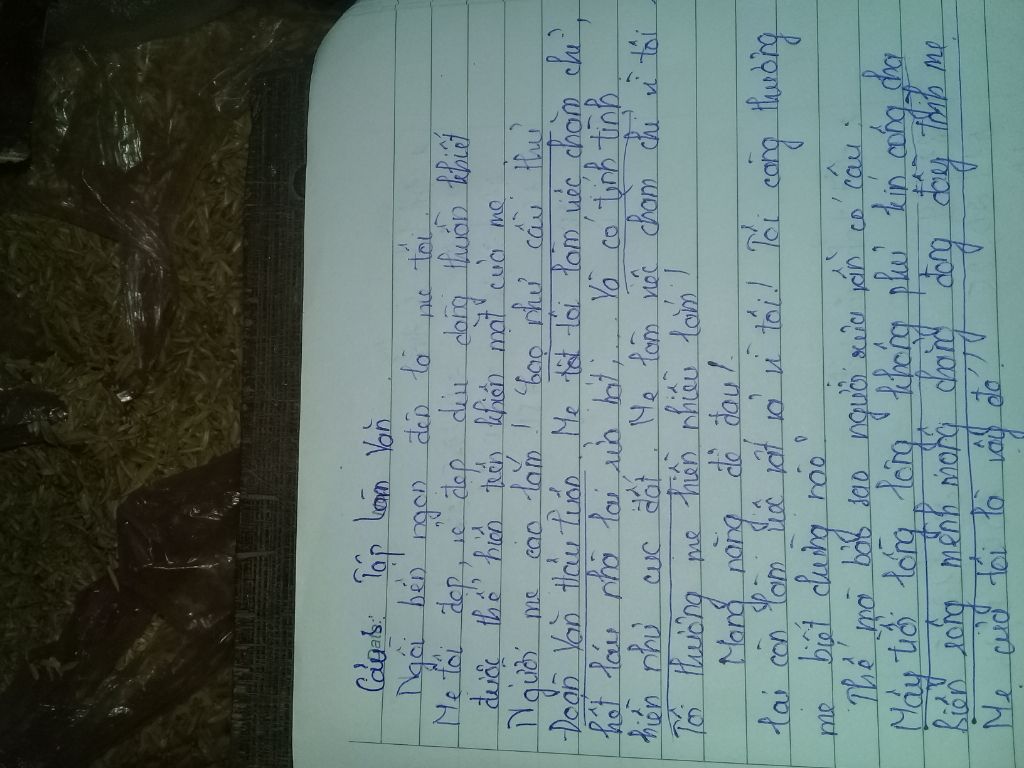 Câu 5: Tập Làm Văn
Ngồi bên ngọn đèn là mẹ tôi.
Mẹ tôi đẹp, vẻ đẹp dịu dàng thuần khiết
được thể hiện trên khuôn mặt của mẹ
Người mẹ cao lắm! "cao như cầu thủ
Đoàn Văn Hậu" luôn Mẹ tôi làm việc chăm chỉ,
hết lau nhà lại rửa bát,. Và có tính tình
hiền như cục đất. Mẹ làm việc chăm chỉ vì tôi
Tôi thương mẹ hiền nhiều lắm!
Mong nàng đó đau!
lại còn làm việc vất vả vì tôi! Tôi càng thương
mẹ biết chừng nào?
Thế mà bỗng sao người xưa vẫn có câu:
Mấy tiời lông lộng không phủ kín công cha
Biển rộng mênh mông chẳng đong đầy tình mẹ.
Mẹ của tôi là vậy đó,